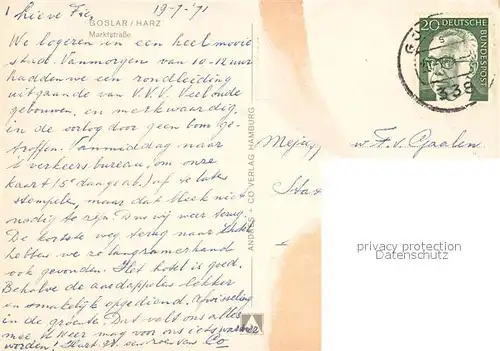 Lieve Fie, 19-7-'71
GOSLAR / HARZ
Marktstraße
We logeren in een heel mooie
stad. Vanmorgen van 10-12 uur
hadden we een rondleiding
uitgaande van V.V.V. Veel oude
gebouwen, en merkwaardig,
in de oorlog door geen bom ge-
troffen. Vanmiddag naar
't verkeersbureau, om onze
kaart (5e dag afb.) af te laten
stempelen, maar dat bleek niet
nodig te zijn. Dus wij weer terug.
De kortste weg terug naar
hebben we zo langzamerhand
ook gevonden. Het hotel is goed.
Behalve de aardappelen lekker
en smakelijk opgediend. Afwisseling
in de groente. Dus valt ons alles
mee. 't Weer mag voor ons iets warmer
worden! Hart. gr. en zoen van Co
ANDRES + CO VERLAG HAMBURG
Mejuff. F. v. Gaalen
20 DEUTSCHE BUNDESPOST
338
privacy protection
Datenschutz